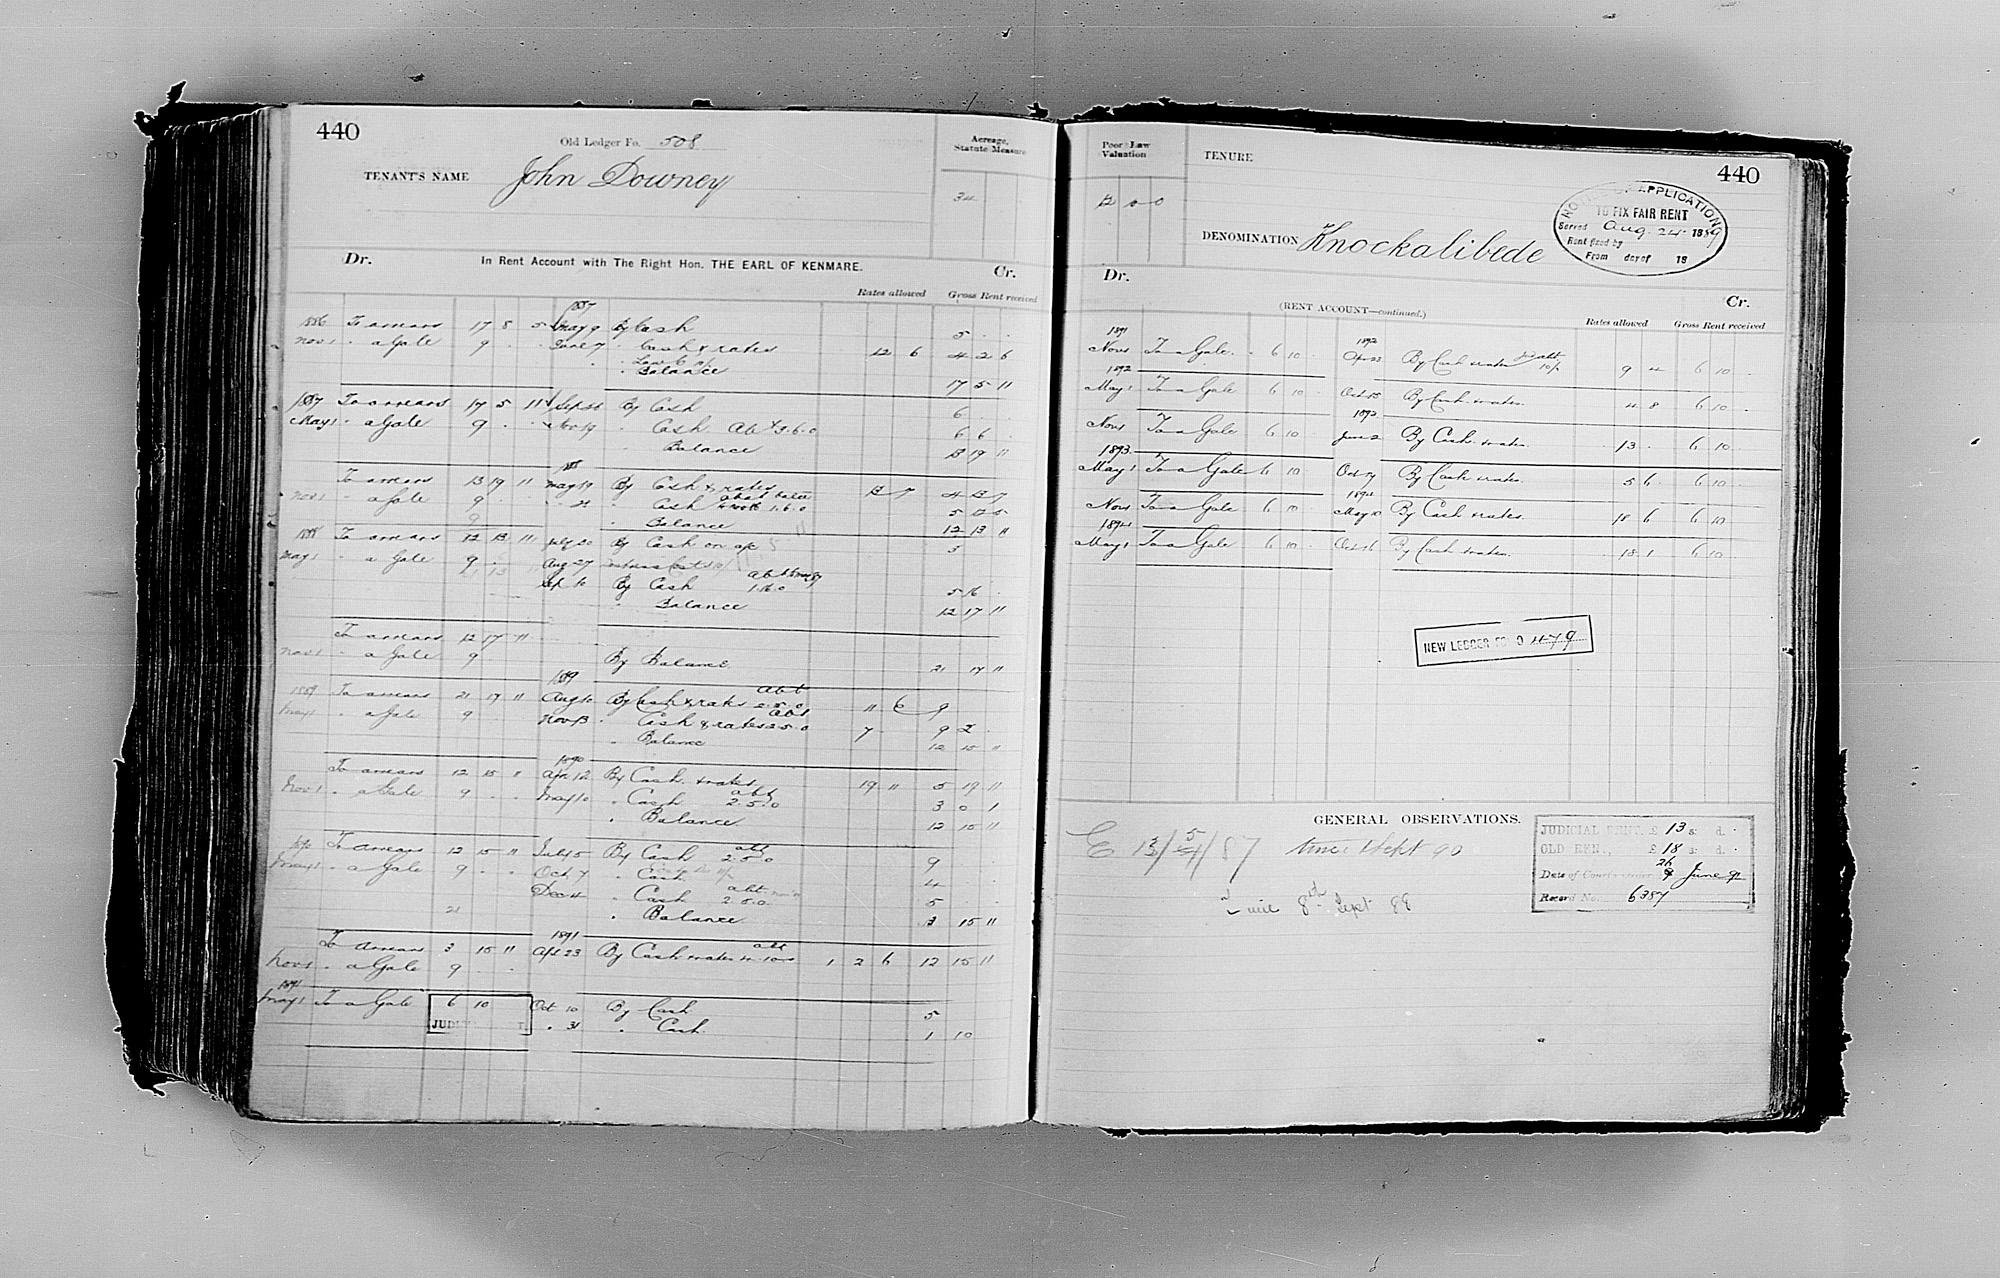 440
Old Ledger Fo. 508
Acreage, Statute Measure
TENANT'S NAME John Downey
34
Dr. In Rent Account with The Right Hon. THE EARL OF KENMARE. Cr.
Rates allowed Gross Rent received
1887
1886 To arrears 17 8 5 May 9 By Cash 5 . .
Nov 1 " a Gale 9 . . June 7 " Cash & rates 12 6 4 2 6
" Balance 17 5 11
1887 To arrears 17 5 11 Sept By Cash 6 .
May 1 " a Gale 9 . . Nov 19 " Cash Abt 3.6.0 6 6 .
Balance 13 19 11
1888
To arrears 13 19 11 May 19 By Cash & rates 13 7 4 13 7
Nov 1 " a Gale 9 . " Cash 1.6.0 5
" Balance 12 13 11
1888 To arrears 12 13 11 July 20 By Cash on a/c 5
May 1 " a Gale 9 . Aug 27
Sept 10 By Cash abt 1.16.0 5 16 .
" Balance 12 17 11
To arrears 12 17 11
Nov 1 " a Gale 9 By Balance 21 17 11
1889
1889 To arrears 21 17 11 Aug 10 By Cash & rates abt 2.5.0 11 6 9
May 1 " a Gale 9 . Nov 13 " Cash & rates abt 2.5.0 7 . 9 2 .
" Balance 12 15 11
1890
To arrears 12 15 11 Apr 12 By Cash & rates 19 11 5 19 11
Nov 1 " a Gale 9 . . May 10 " Cash abt 2.5.0 3 0 1
" Balance 12 15 11
1890 To arrears 12 15 11 July 5 By Cash abt 2.5.0 9
May 1 " a Gale 9 . . Oct 7 " Cash 4
Dec 11 " Cash abt 2.5.0 5 .
21 " Balance 3 15 11
1891
To arrears 3 15 11 Apr 23 By Cash & rates abt 1 2 6 12 15 11
Nov 1 " a Gale 9 . .
1891
May 1 To a Gale 6 10 Oct 10 By Cash 5
" 31 " Cash 1 10
440
Poor Law Valuation
12 0 0
TENURE
DENOMINATION Knockalibede
NOTICE OF APPLICATION
TO FIX FAIR RENT
Served Aug. 24 1889
Rent fixed by
From day of 18
Dr. Cr.
(RENT ACCOUNT—continued.)
Rates allowed Gross Rent received
1891 1892
Nov 1 To a Gale 6 10 . Apr 23 By Cash & rates abt 10/- 9 4 6 10 .
1892
May 1 To a Gale 6 10 Oct 15 By Cash & rates 4 8 6 10 .
1893
Nov 1 To a Gale 6 10 . June 2 By Cash & rates 13 . 6 10 .
1893
May 1 To a Gale 6 10 Oct By Cash & rates 5 6 . 6 10 .
1894
Nov 1 To a Gale 6 10 . May 10 By Cash & rates 18 6 6 10
1894
May 1 To a Gale 6 10 . Oct 16 By Cash & rates 18 1 6 10 .
NEW LEDGER FO 479
GENERAL OBSERVATIONS.
E 13/5/87 time Sept 90
8th Sept 88
JUDICIAL RENT, £ 13 s. d.
OLD RENT, £ 18 s. d.
Date of Courts order 26 June 91
Record No. 6387